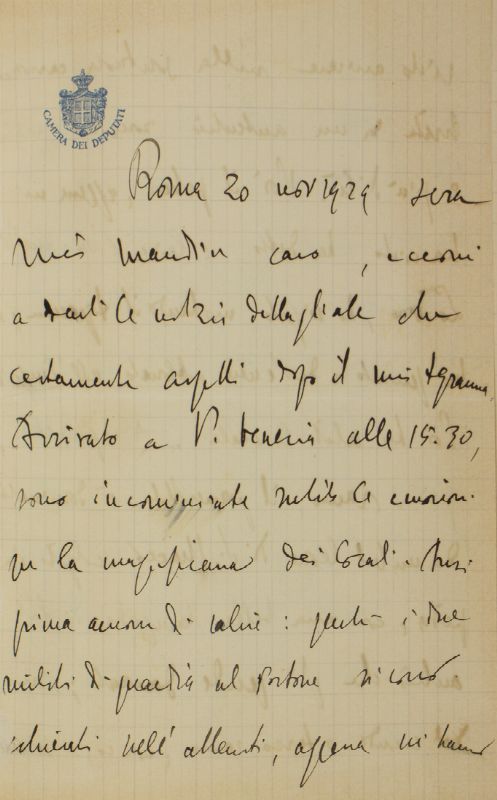 CAMERA DEI DEPUTATI
Roma 20 nov 1929 sera
caro, eccomi
a darti le notizie dettagliate che
certamente aspetti dopo il mio
Arrivato a P. Venezia alle 15.30,
sono incominciate subito le emozioni
per la magnificenza dei locali. Anzi
prima ancora di salire: perché i due
militi di guardia al Portone si sono
schierati nell'attenti, appena mi hanno